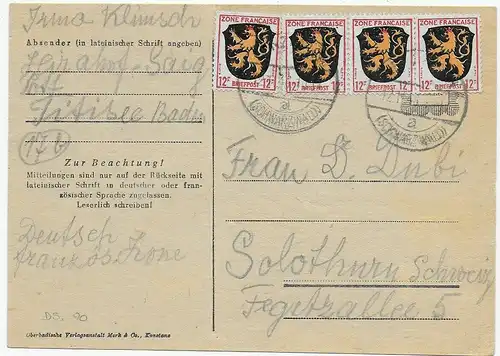 Irma Klimsch
Absender (in lateinischer Schrift angeben)
Post
Titisee Baden
17b
Zur Beachtung!
Mitteilungen sind nur auf der Rückseite mit
lateinischer Schrift in deutscher oder fran-
zösischer Sprache zugelassen.
Leserlich schreiben!
Deutsch
französ. Zone
DS. 90
Oberbadische Verlagsanstalt Merk & Co., Konstanz
ZONE FRANÇAISE ZONE FRANÇAISE ZONE FRANÇAISE ZONE FRANÇAISE
12 F BRIEFPOST 12 F 12 F BRIEFPOST 12 F 12 F BRIEFPOST 12 F 12 F BRIEFPOST 12 F
a
(SCHWARZWALD)
a
(SCHWARZWALD)
Frau D. Dubi
Solothurn Schweiz
Fegetzallee 5